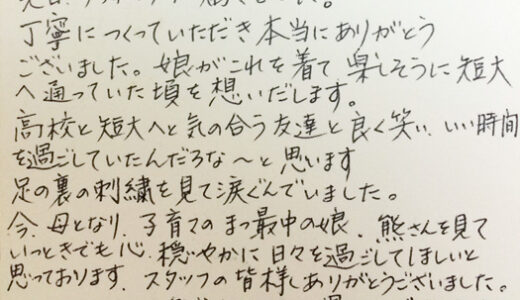 丁寧につくっていただき本当にありがとう
ございました。娘がこれを着て楽しそうに短大
へ通っていた頃を想いだします。
高校と短大へと気の合う友達と良く笑い、いい時間
を過ごしていたんだろな〜と思います
足の裏の刺繍を見て涙ぐんでいました。
今、母となり、子育てのまっ最中の娘、熊さんを見て
いっときでも心穏やかに日々を過ごしてほしいと
思っております。スタッフの皆様ありがとうございました。